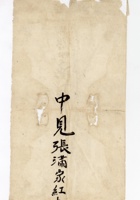 中見張滿泉紅